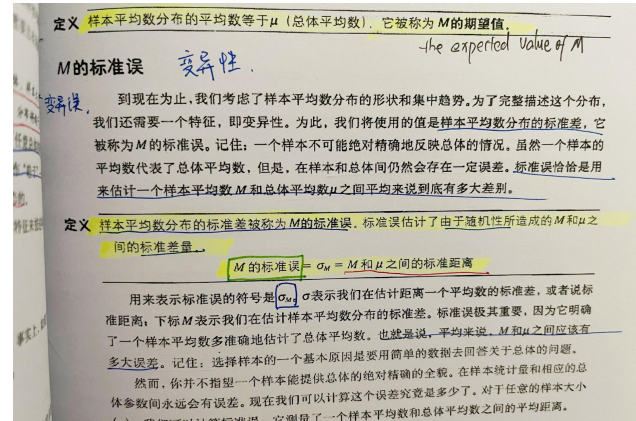 定义 样本平均数分布的平均数等于μ(总体平均数),它被称为M的期望值.
the expected value of M
M的标准误 变异性.
变异误.
到现在为止,我们考虑了样本平均数分布的形状和集中趋势。为了完整描述这个分布,
我们还需要一个特征,即变异性。为此,我们将使用的值是样本平均数分布的标准差,它
被称为M的标准误。记住:一个样本不可能绝对精确地反映总体的情况。虽然一个样本的
平均数代表了总体平均数,但是,在样本和总体间仍然会存在一定误差。标准误恰恰是用
来估计一个样本平均数M和总体平均数μ之间平均来说到底有多大差别。
定义 样本平均数分布的标准差被称为M的标准误。标准误估计了由于随机性所造成的M和μ之
间的标准差量。
M的标准误=σM=M和μ之间的标准距离
用来表示标准误的符号是σM。σ表示我们在估计距离一个平均数的标准差,或者说标
准距离;下标M表示我们在估计样本平均数分布的标准差。标准误极其重要,因为它明确
了一个样本平均数多准确地估计了总体平均数。也就是说,平均来说,M和μ之间应该有
多大误差。记住:选择样本的一个基本原因是要用简单的数据去回答关于总体的问题。
然而,你并不指望一个样本能提供总体的绝对精确的全貌。在样本统计量和相应的总
体参数间永远会有误差。现在我们可以计算这个误差究竟是多少了。对于任意的样本大小
它测量了一个样本平均数和总体平均数之间的平均距离。